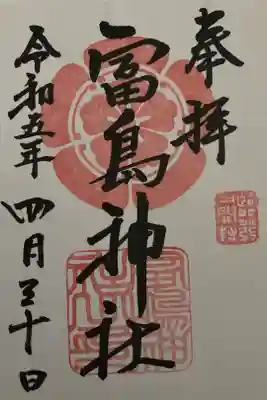 奉拝
冨島神社
令和五年
四月三十日